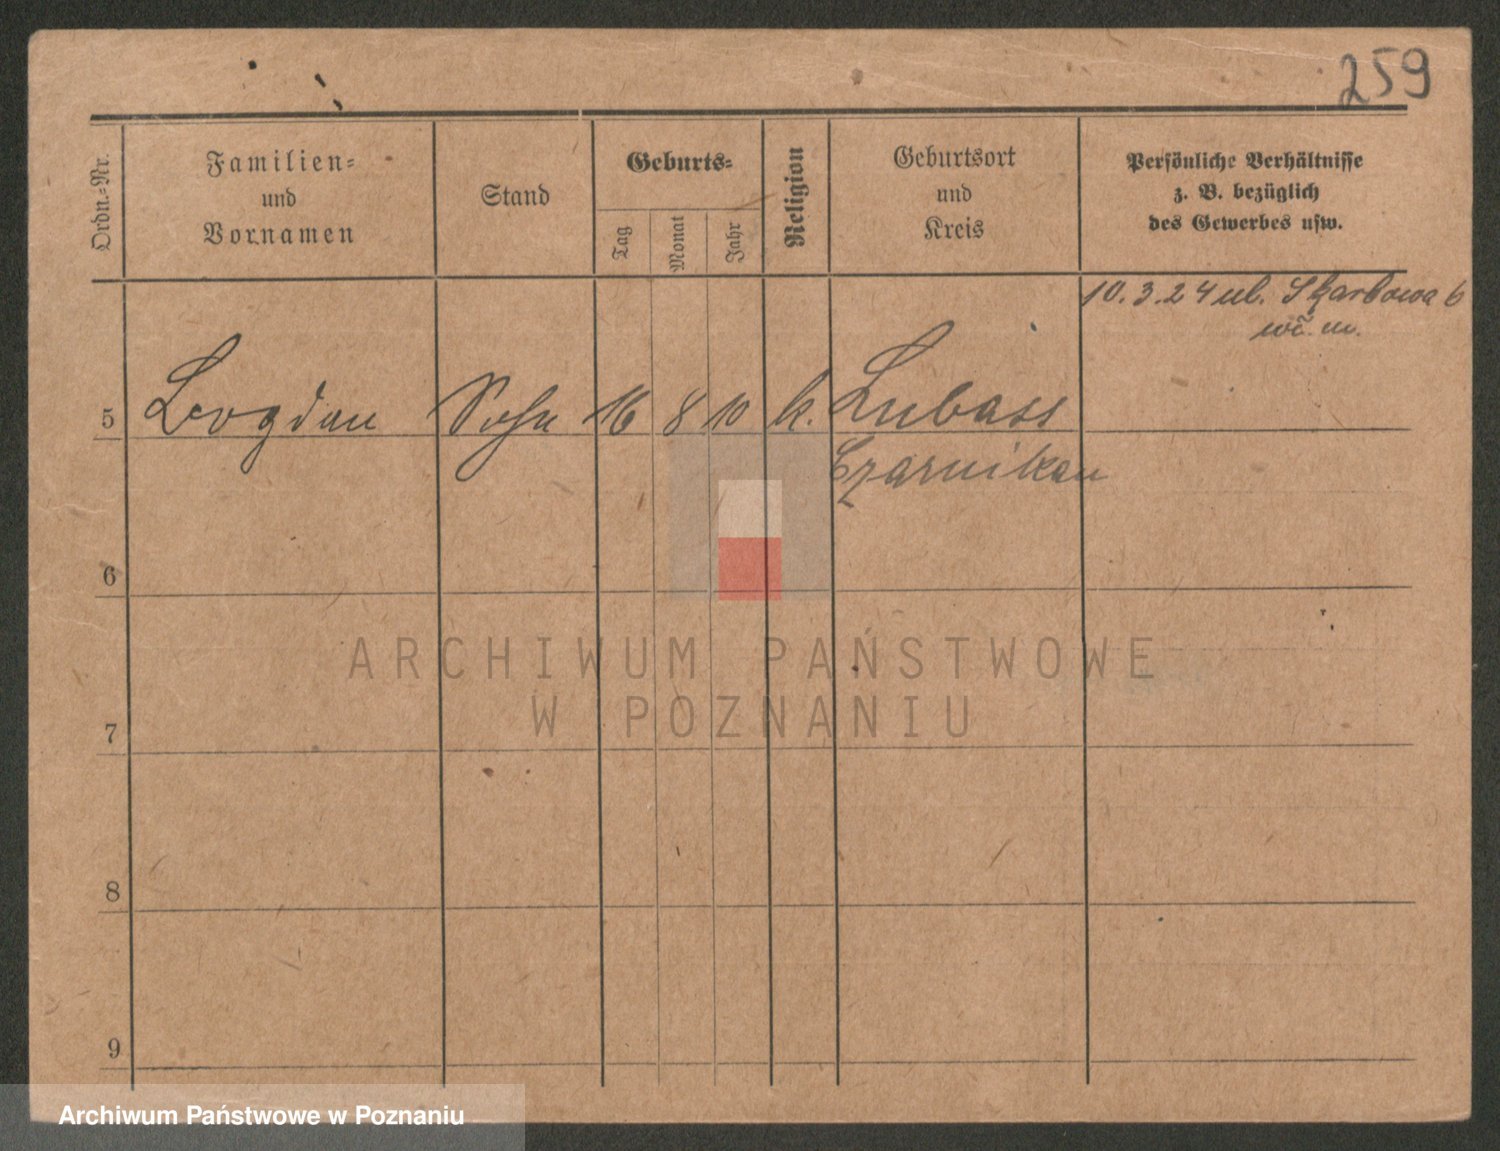 259
Ordn.-Nr.
Familien-
und
Vornamen
Stand
Geburts-
Tag
Monat
Jahr
Religion
Geburtsort
und
Kreis
Persönliche Verhältnisse
z. B. bezüglich
des Gewerbes usw.
10.3.24 ul. Skarbowa 6
5 Bogdan Sohn 16 8 10 k. Lubass
Czarnikau
6
7
8
9
ARCHIWUM PAŃSTWOWE
W POZNANIU
Archiwum Państwowe w Poznaniu